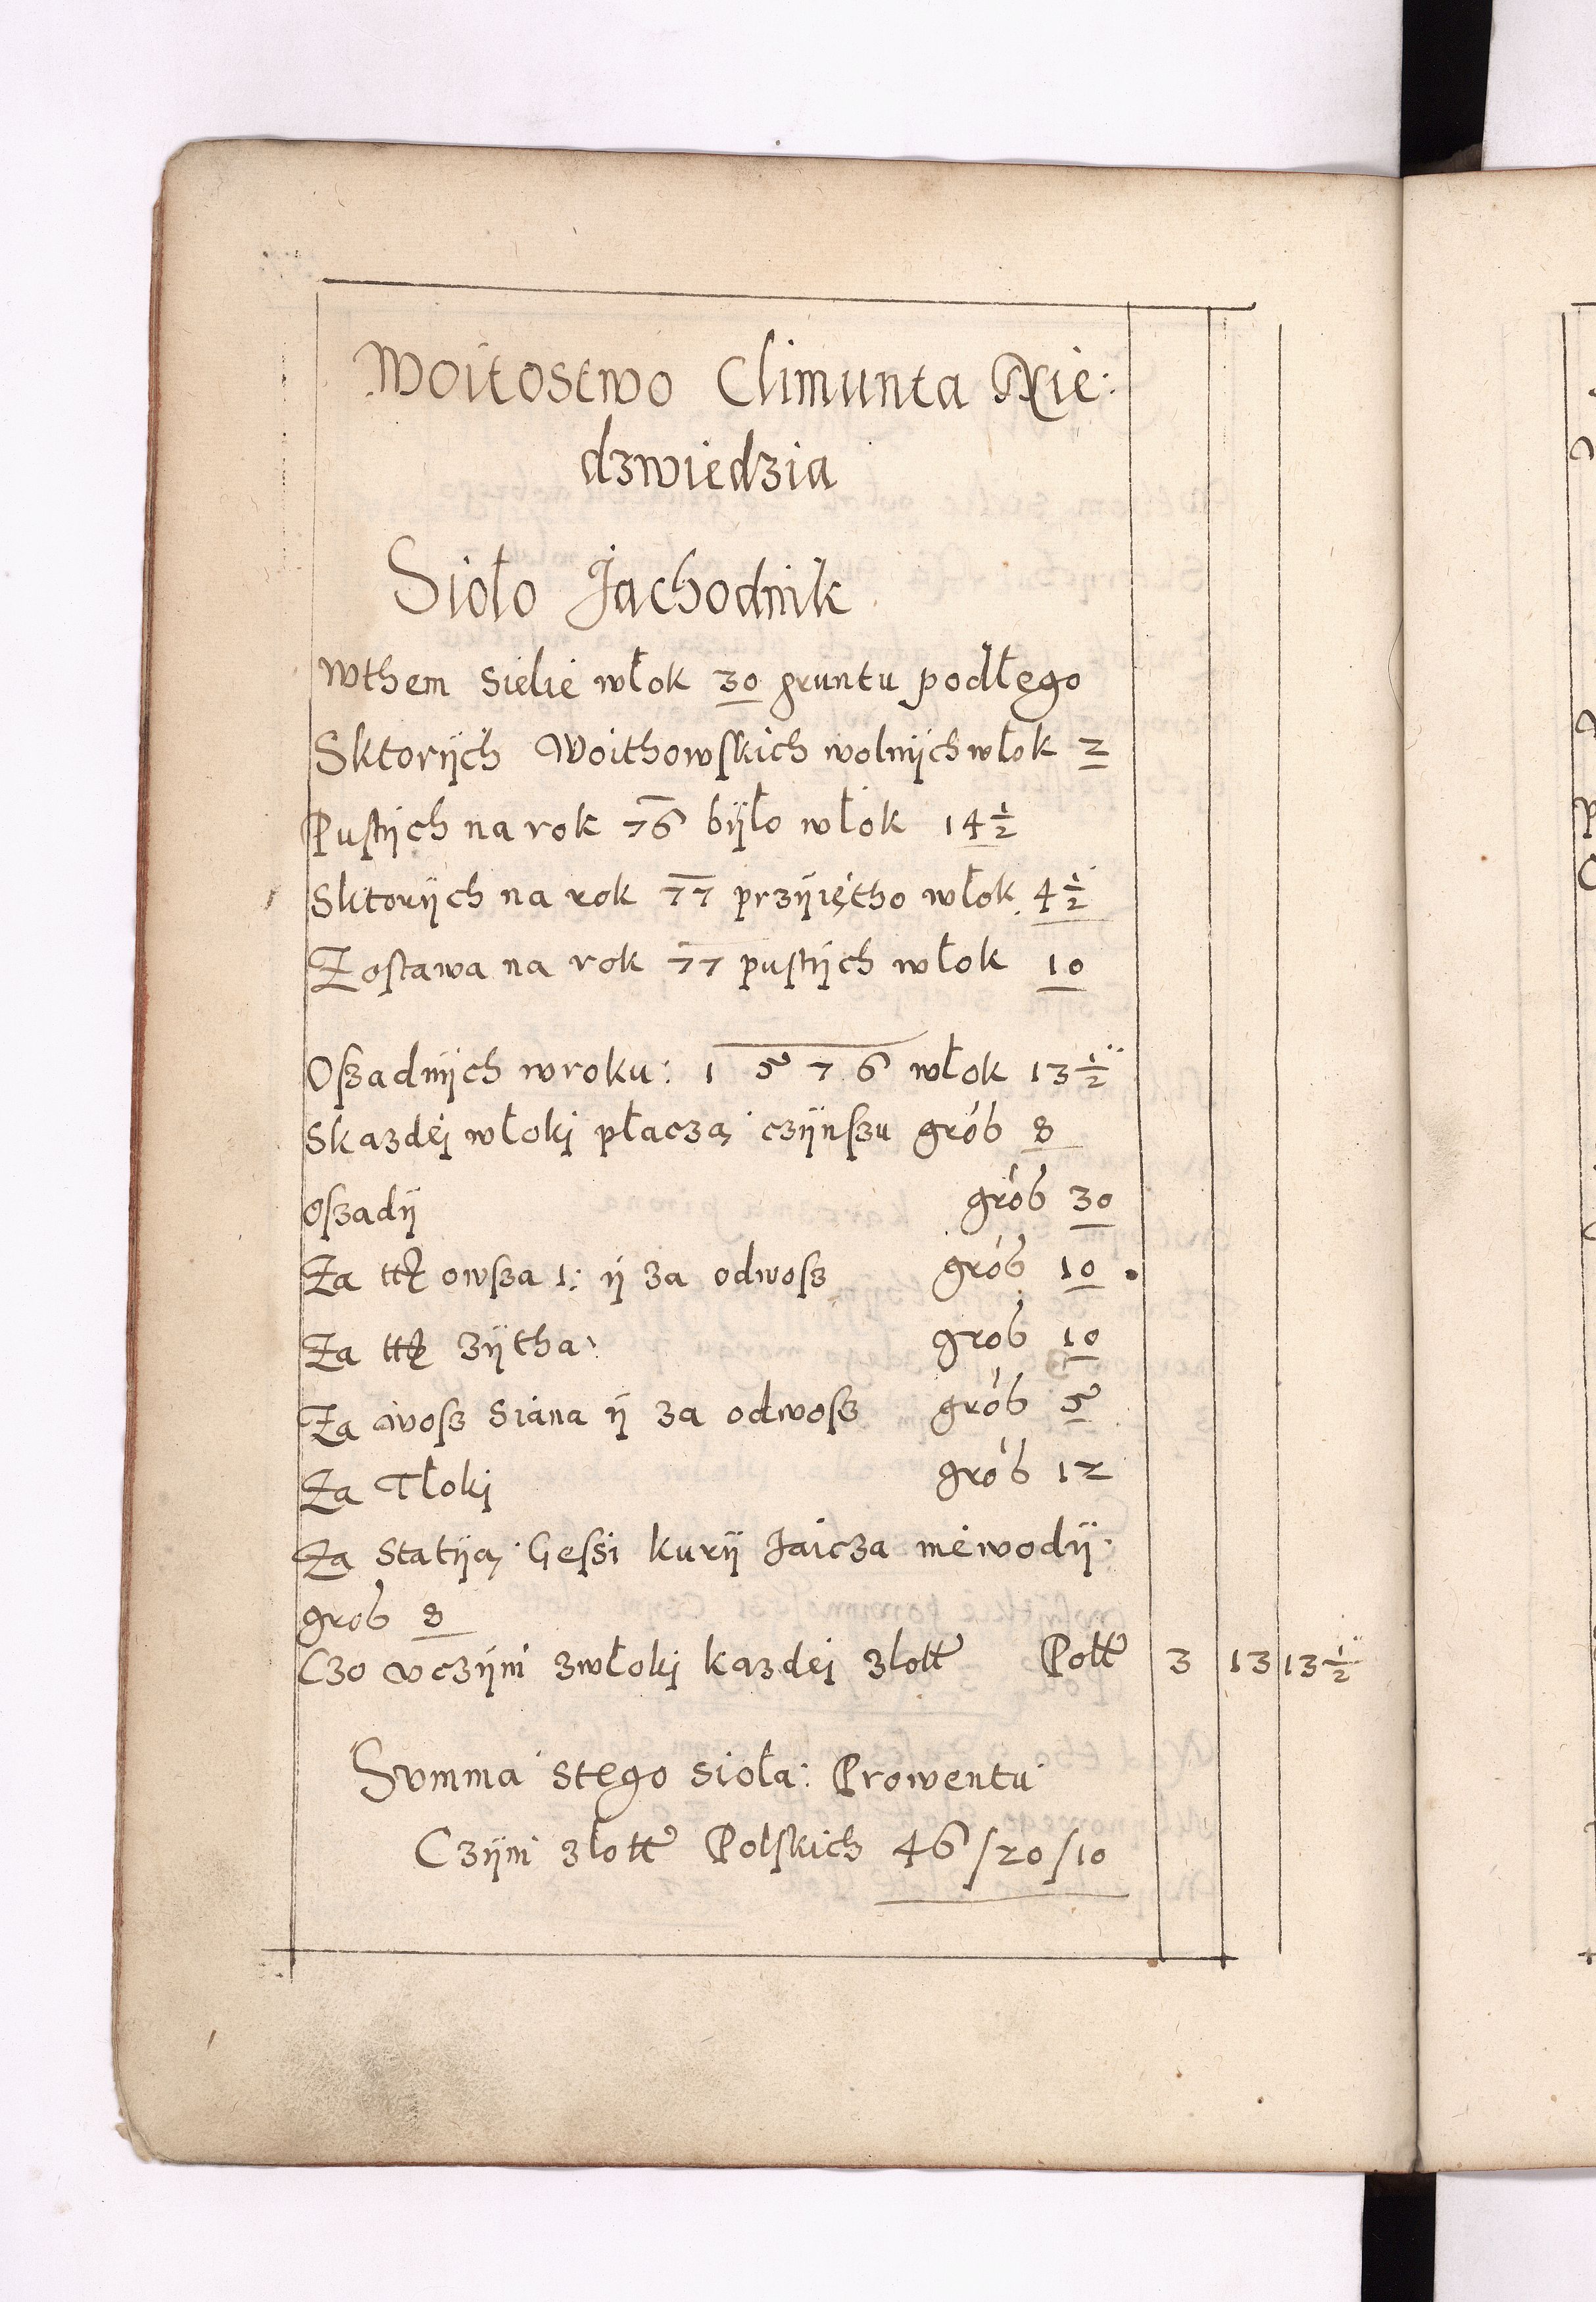 Woitostwo Climunta Nie:
dzwiedzia
Sioło Jachodnik
Wthem Sielie włok 30 gruntu podłego
Sktorÿch Woithowskich wolnÿch włok 2
Pustÿch na rok 76 bÿło włok 14 1/2
Sktorÿch na rok 77 przÿiętho włok 4 1/2
Zostawa na rok 77 pustÿch włok 10
Oszadnÿch wroku: 1576 włok 13 1/2
Skazdei włoki płaczą czÿnszu grob 8
Oszadÿ grob 30
Za owsza 1: ÿ za odwosz grob 10
Za zÿtha grob 10
Za wosz Siana ÿ za odwosz grob 5
Za Tłoki grob 12
Za Statÿą Gessi kurÿ Jaicza niewodÿ
grob 8
Czo vczÿni zwłoki kazdei złott Poltt 3 13 13 1/2
Svmma stego sioła: Prowentu
Czÿni złott Polskich 46/20/10